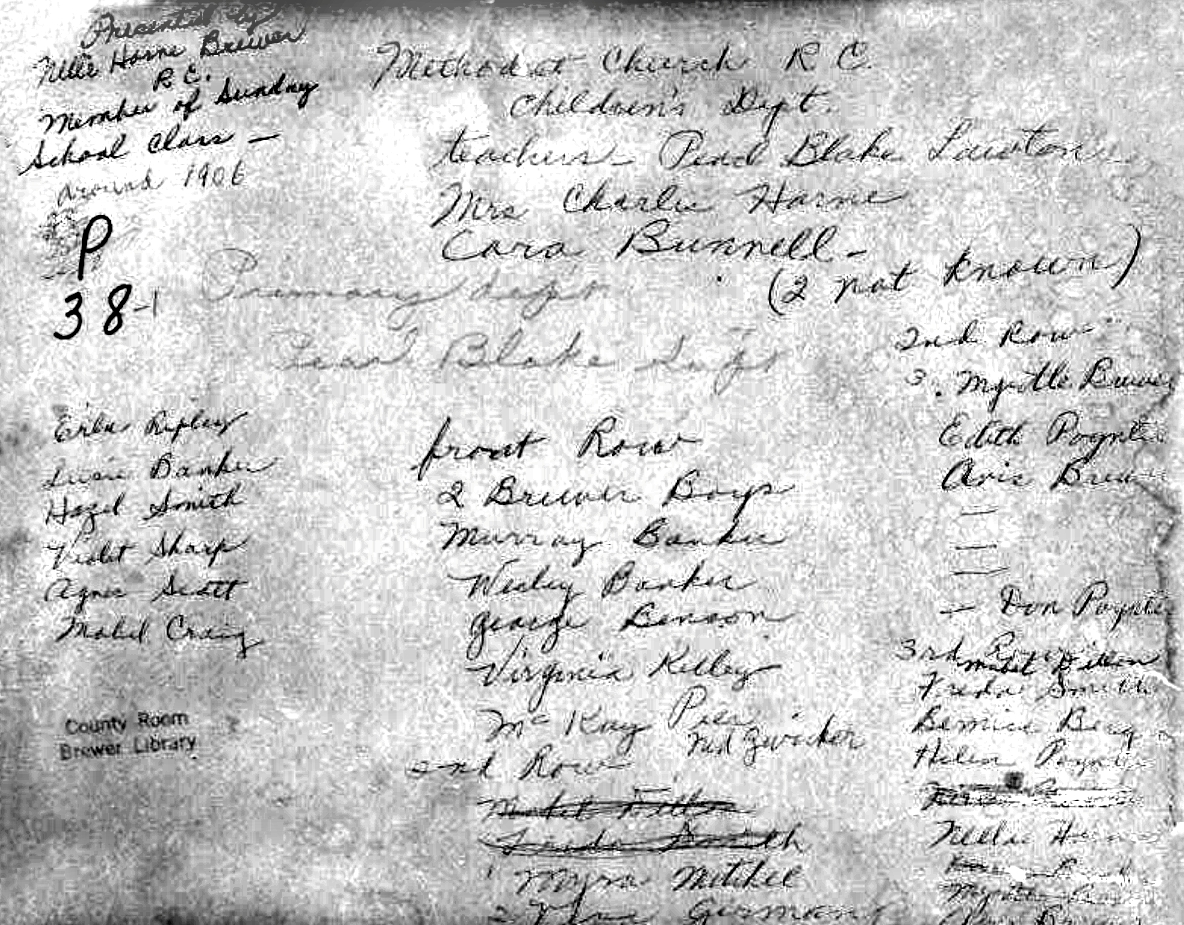 Presented by
Nelle Harne Brewer
R.C.
Member of Sunday
School Class —
around 1906
P
38-1
Methodist Church R C.
Children's Dept.
teachers — Pearl Blake Lawton
Mrs Charlie Harne
Cora Bunnell —
(2 not known)
Primary Dept
Pearl Blake Supt
Erla Ripley
Susie Banker
Hazel Smith
Violet Sharp
Agnes Scott
Mabel Craig
County Room
Brewer Library
front Row
2 Brewer Boys
Murray Banker
Wesley Banker
George Benson
Virginia Kelley
McKay Pier
Ned Zwicker
2nd Row
Mabel Dillon
Freda Smith
1 Myra Mitchel
2 German
2nd Row
3. Myrtle Brewer
Edith Poynter
Avis Brew
—
—
—
— Don Poynter
3rd Row
Mabel Dillon
Freda Smith
Bernice Berg
Helen Poynter
Nella Harn
Myrtle